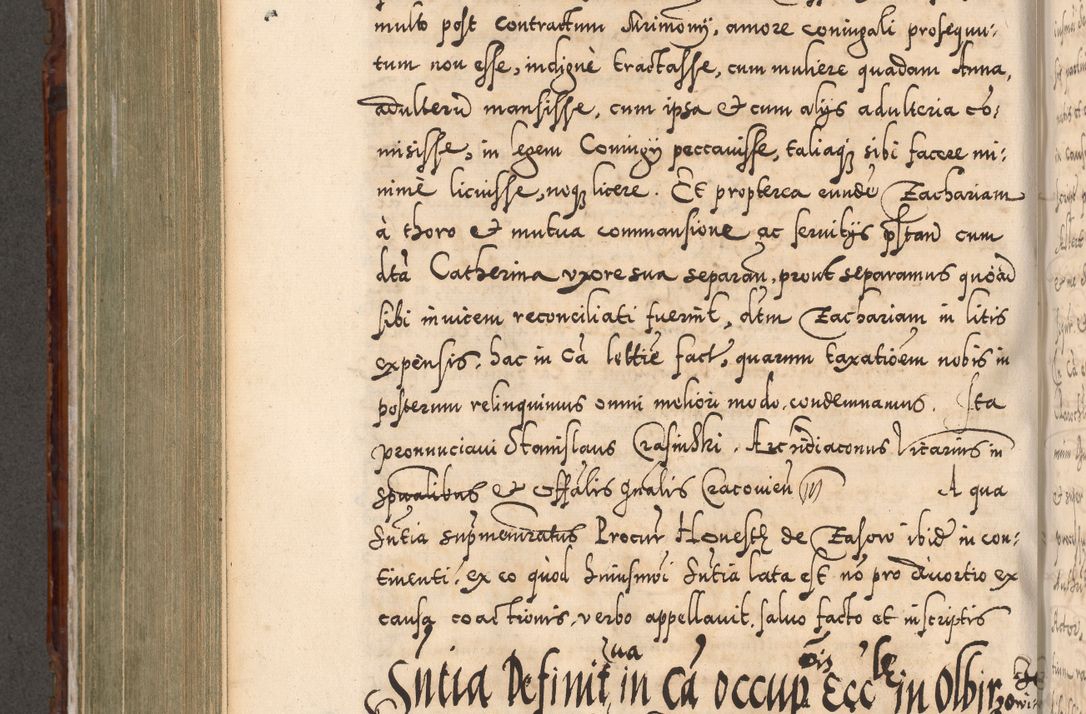 multo post contractum Mrimonÿ, amore coniugali prosequu:
tum non esse, indignè tractasse, cum muliere quadam Anna,
adulterū mansisse, cum ipsa et cum alÿs adulteria cō:
misisse, in legem Coniugÿ peccauisse, taliaq̨ sibi facere mi:
nimè licuisse, neq̨ licere. Et propterea eundē Zachariam
à thoro et mutua commansione ac seruitÿs pstan̄ cum
dtā Catherina vxore sua separan̄, prout separamus quoad
sibi inuicem reconciliati fuerint, dtm Zachariam in litis
expensis, hac in Cā lottiē fact, quarum taxatiōem nobis in
posterum relinquimus omni meliori modo condemnamus. Ita
pronunciaui Stanislaus Crasinski. Archidiaconus Vicarius in
spūalibus et offālis Gnālis Cracouien̄ A qua
Sntīa supmemoratus Procur Honesty de Zasow ibid in con:
tinenti, ex eo quòd huiusmōi Sntīa lata est nō pro diuortio ex
causa coactionis, verbo appellauit, saluo facto et in scriptis
Sntīa Definitiua in Cā occupōis Ecclē in Olbirzowi